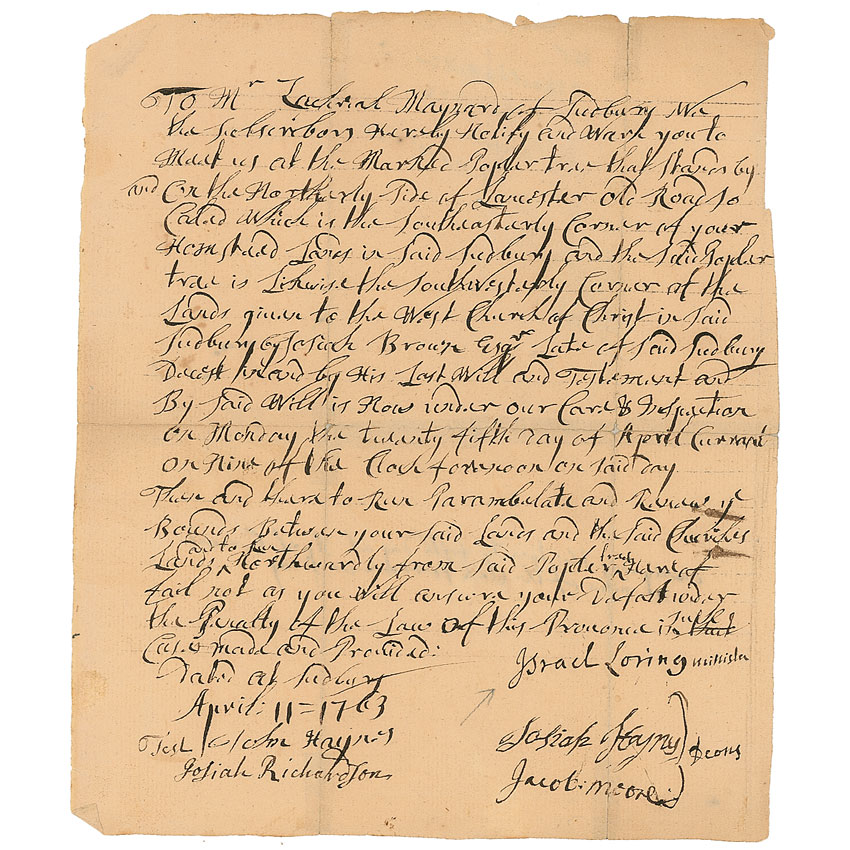 To Mr Zachriah Maynard of Sudbury We
the Subscribors Hereby Notify and Warn you to
Meet us at the Marked Popler tree that Stands by
and On the Northerly Side of Lancester Old Road So
Caled Which is the Southeasterly Corner of your
Homstead Lands in Said Sudbury and the Said Popler
tree is Likewise the Southwesterly Corner of the
Lands given to the West Church of Christ in Said
Sudbury by Josiah Brown Esqr Late of Said Sudbury
Decest in and by His Last Will and Testement and
By Said Will is Now under our Care & Inspection
on Monday the twenty fifth Day of April Currant
on Nine of the Clock forenoon on Said day
Then and there to Run Parambelate and Renew ye
Bounds Between your Said Lands and the Said Churches
Lands and to Run Northwardly from Said Popler tree Hereof
fail not as you Will answer your Defalt under
the Penalty of the Law of this Provence in Such
Cases made and Provided:
Dated at Sudbury
April: 11=1763
Israel Loring minister
Test John Haynes
Josiah Richardson
Josiah Haynes
Deons
Jacob: Moore